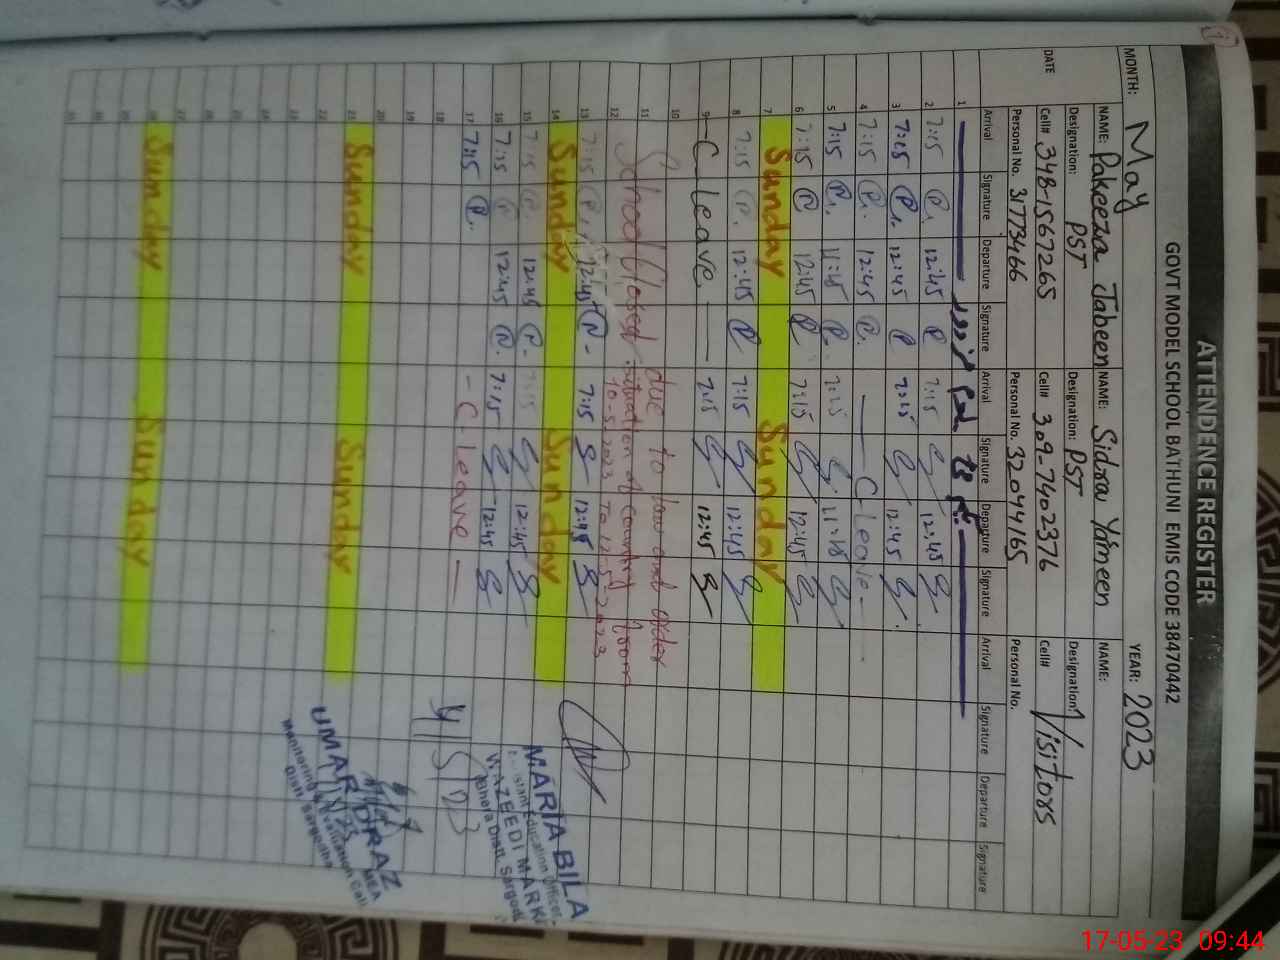 ATTENDENCE REGISTER
GOVT MODEL SCHOOL BATHUNI EMIS CODE 38470442
MONTH: May YEAR: 2023
NAME: Pakeeza Jabeen NAME: Sidra Yameen NAME:
Designation: PST Designation: PST Designation: Visitors
DATE Cell# 348-1567265 Cell# 309-7402376 Cell#
Personal No. 31773466 Personal No. 32044165 Personal No.
Arrival Signature Departure Signature Arrival Signature Departure Signature Arrival Signature Departure Signature
1
2 7:15 P. 12:45 P 7:15 12:45
3 7:15 P. 12:45 P 7:15 12:45
4 7:15 P. 12:45 P. — C leave —
5 7:15 P. 11:45 P. 7:15 11:45
6 7:15 P 12:45 P 7:15 12:45
7 Sunday Sunday
8 7:15 P. 12:45 P 7:15 12:45
9 — C leave — 7:15 12:45
10
11 School Closed due to law and order
12 situation of country from
10-5-2023 To 12-5-2023
13 7:15 P. 12:45 P. 7:15 12:45
14 Sunday Sunday
15 7:15 P. 12:45 P. 7:15 12:45
16 7:15 P 12:45 P. 7:15 12:45
17 7:15 P. — C leave —
18
19
20
21 Sunday Sunday
22
23
24
25
26
27
Sunday Sunday
MARIA BILA
Assistant Education Officer
WAZEEDI MARK
Bhera Distt. Sargod
4/5/23
UMAR DRAZ MEA
Monitoring & Evaluation Cell
Distt. Sargodha
17-05-23 09:44